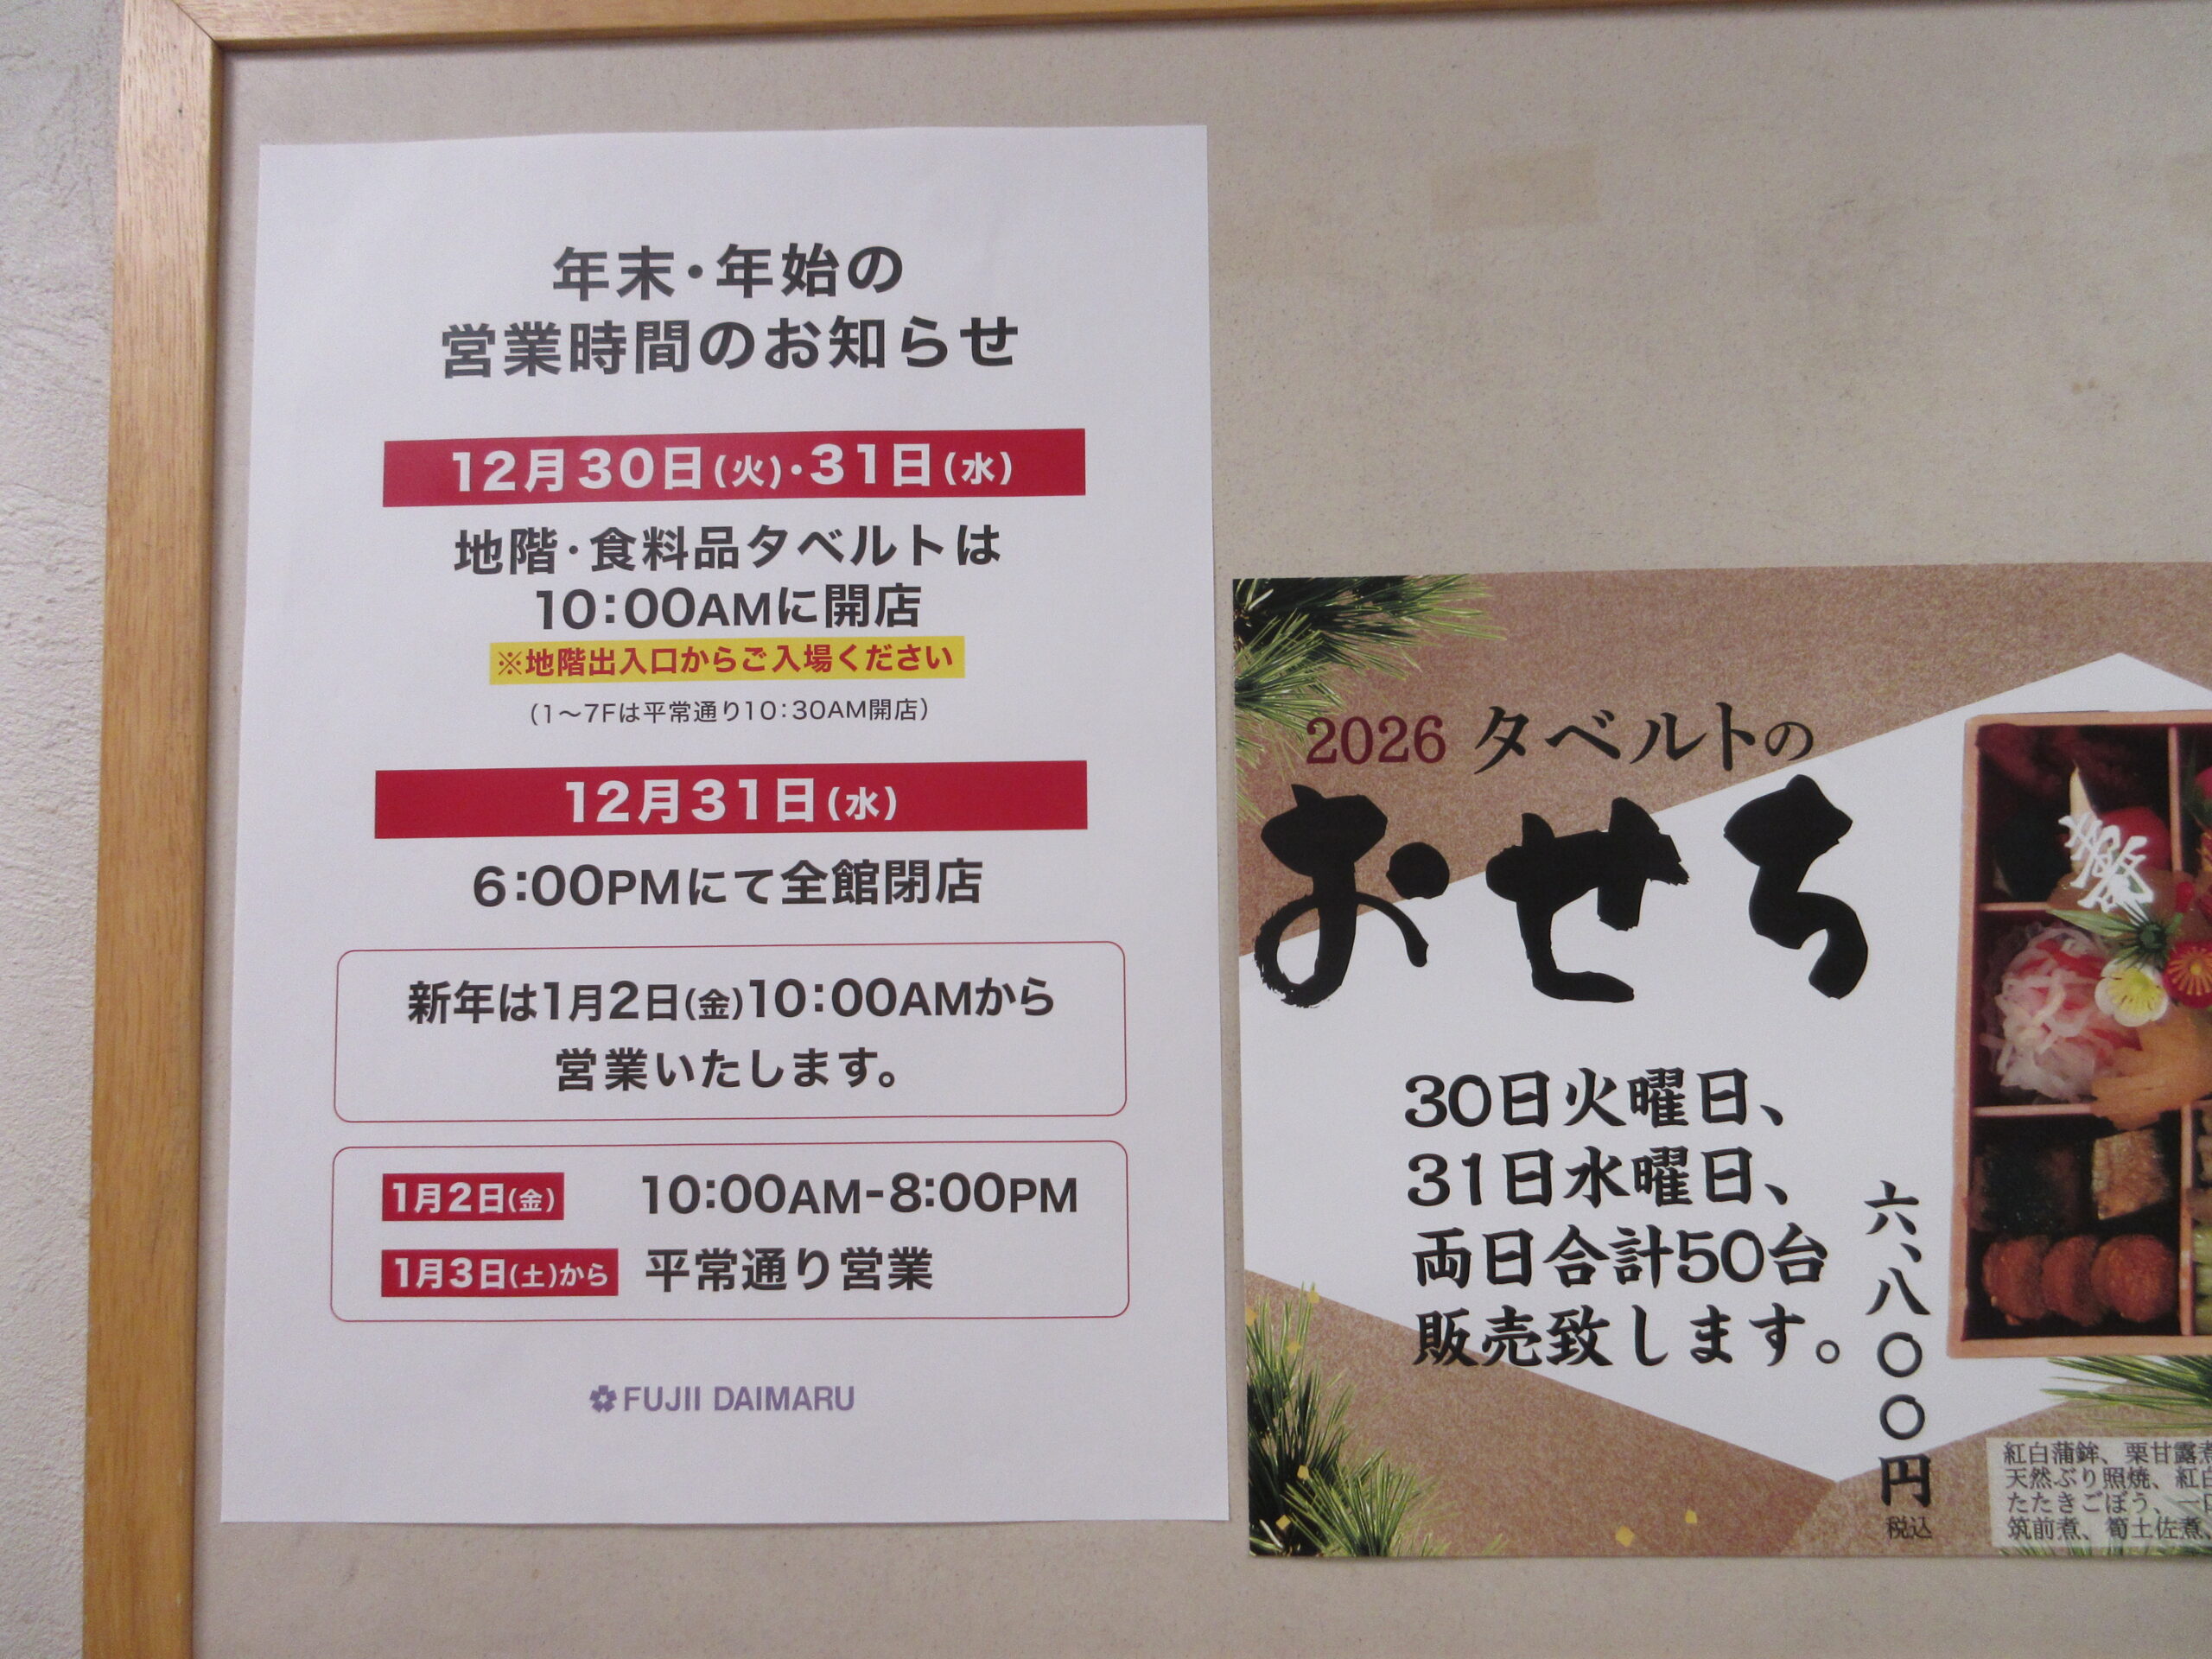 年末・年始の
営業時間のお知らせ
12月30日(火)・31日(水)
地階・食料品タベルトは
10:00AMに開店
※地階出入口からご入場ください
(1〜7Fは平常通り10:30AM開店)
12月31日(水)
6:00PMにて全館閉店
新年は1月2日(金)10:00AMから
営業いたします。
1月2日(金) 10:00AM-8:00PM
1月3日(土)から 平常通り営業
FUJII DAIMARU
2026 タベルトの
おせち
30日火曜日、
31日水曜日、
両日合計50台
販売致します。
六、八〇〇円
税込
紅白蒲鉾、栗甘露煮
天然ぶり照焼、紅白
たたきごぼう、一口
筑前煮、筍土佐煮、